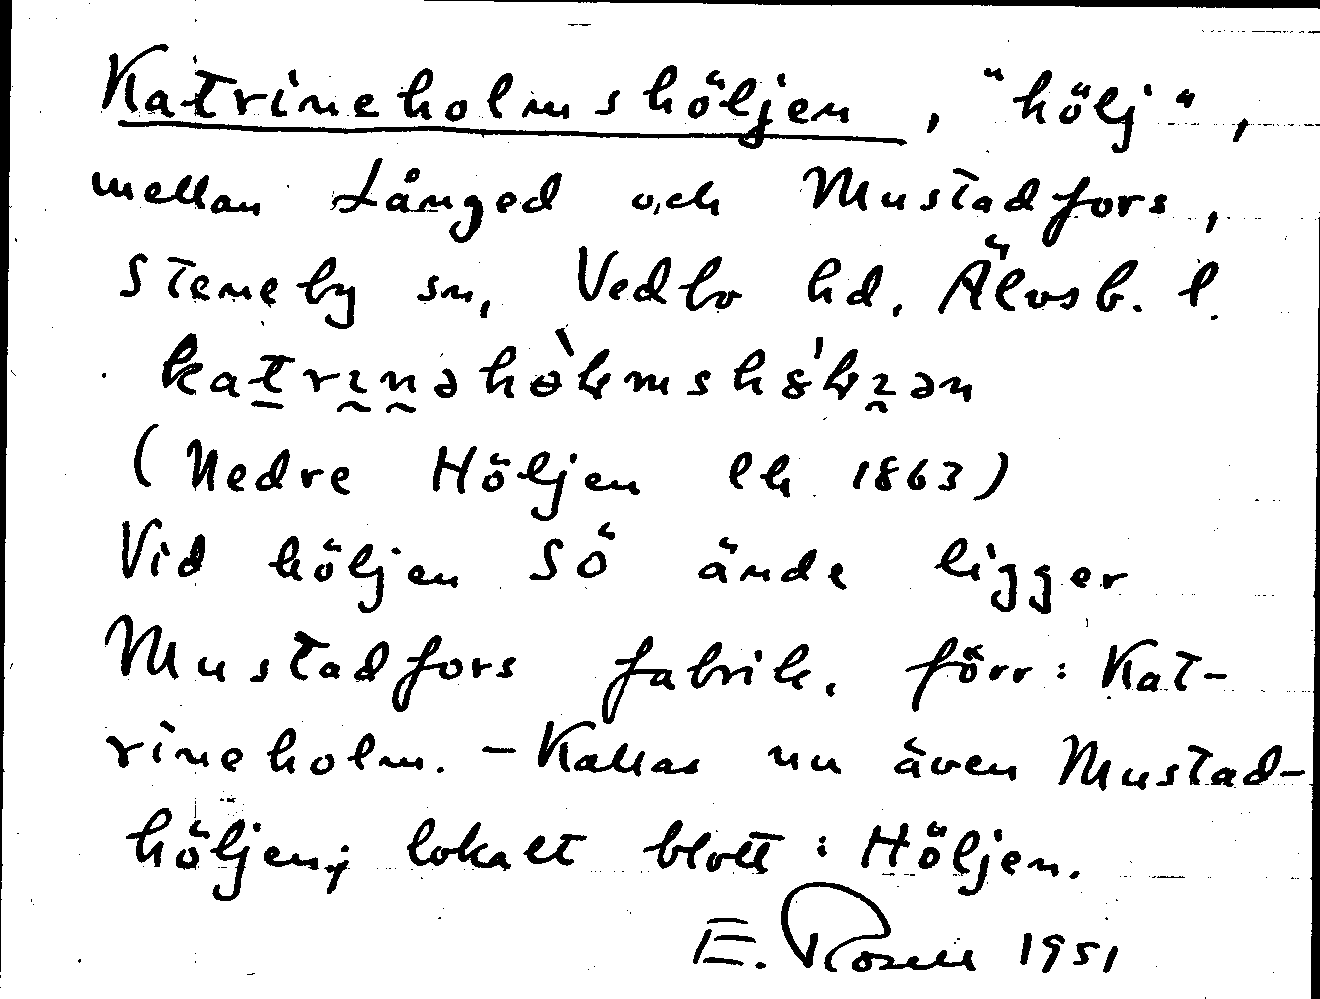 Katrineholmshöljen, "hölj",
mellan Långed och Mustadfors,
Steneby sn, Vedbo hd, Älvsb. l.
(Nedre Höljen ek 1863)
Vid höljen SÖ ände ligger
Mustadfors fabrik, förr: Kat-
rineholm. – Kallas nu även Mustad-
höljen; lokalt blott: Höljen.
E. Rosell 1951